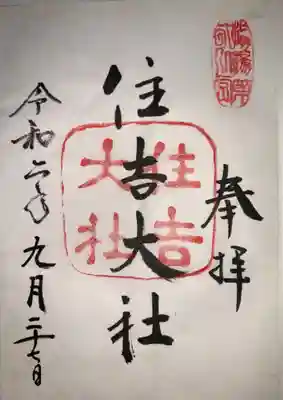 奉拝
住吉大社
住吉大社
令和六年九月二十七日